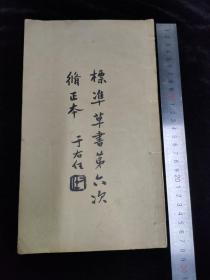 標準草書第六次
脩正本
于右任